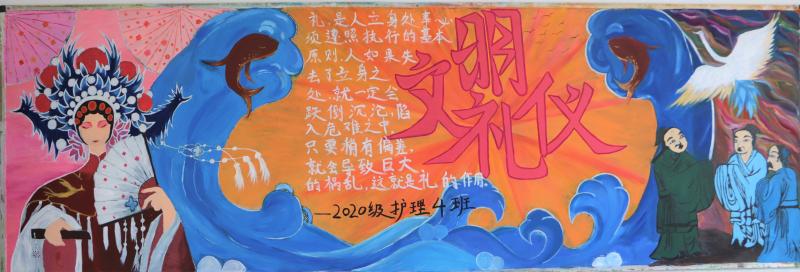 礼，是人立身处事必
须遵照执行的基本
原则，人如果失
去了立身之
处，就一定会
跌倒、沉沦、陷
入危难之中，
只要稍有偏差，
就会导致巨大
的祸乱，这就是礼的作用。
文明
礼仪
—2020级护理4班